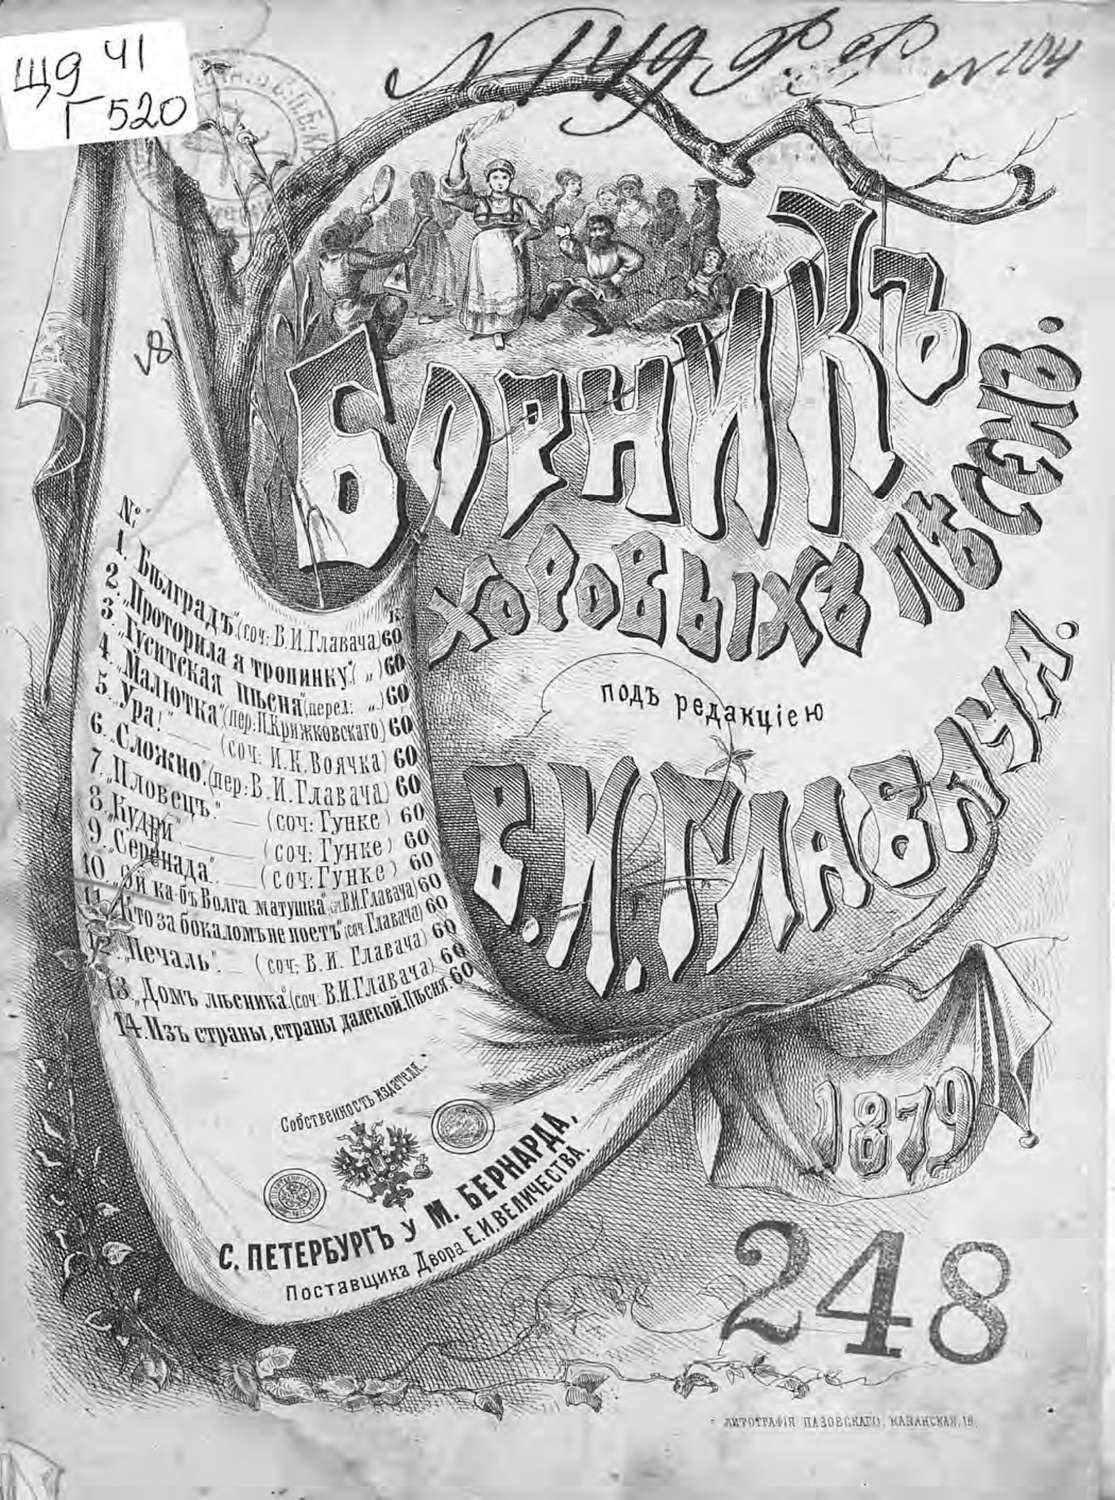 ЩЯ ЧІ
Г 520
№ 149
№ 104
БОРНИКЪ
ХОРОВЫХЪ ПѢСЕНЪ.
подъ редакціею
В. И. ГЛАВАЧА.
№
К
1. „Бѣлградъ" (соч: В.И.Главача) 60
2. „Проторила я тропинку." ( „ ) 60
3. „Гуситская пѣсня" (перел: „ ) 60
4. „Малютка" (пер: П.Крижковскаго) 60
5. „Ура!" (соч: И.К.Воячка) 60
6. „Сложно". (пер: В.И.Главача) 60
7. „Пловецъ." (соч: Гунке) 60
8. „Кудри" (соч: Гунке) 60
9. „Серенада" (соч: Гунке) 60
10. „Ой ка-бъ Волга матушка" (соч: В.И Главача) 60
11. Кто за бокаломъ не поетъ" (соч: Главача) 60
12. „Печаль". (соч: В. И. Главача) 60
13. „Домъ лѣсника". (соч: В.И.Главача) 60
14. Изъ страны, страны далекой. Пѣсня. 60
Собственность издателя.
С. ПЕТЕРБУРГЪ У М. БЕРНАРДА,
Поставщика Двора Е.И.ВЕЛИЧЕСТВА.
1879
248
ЛИТОГРАФІЯ ПАЗОВСКАГО, КАЗАНСКАЯ, 18.